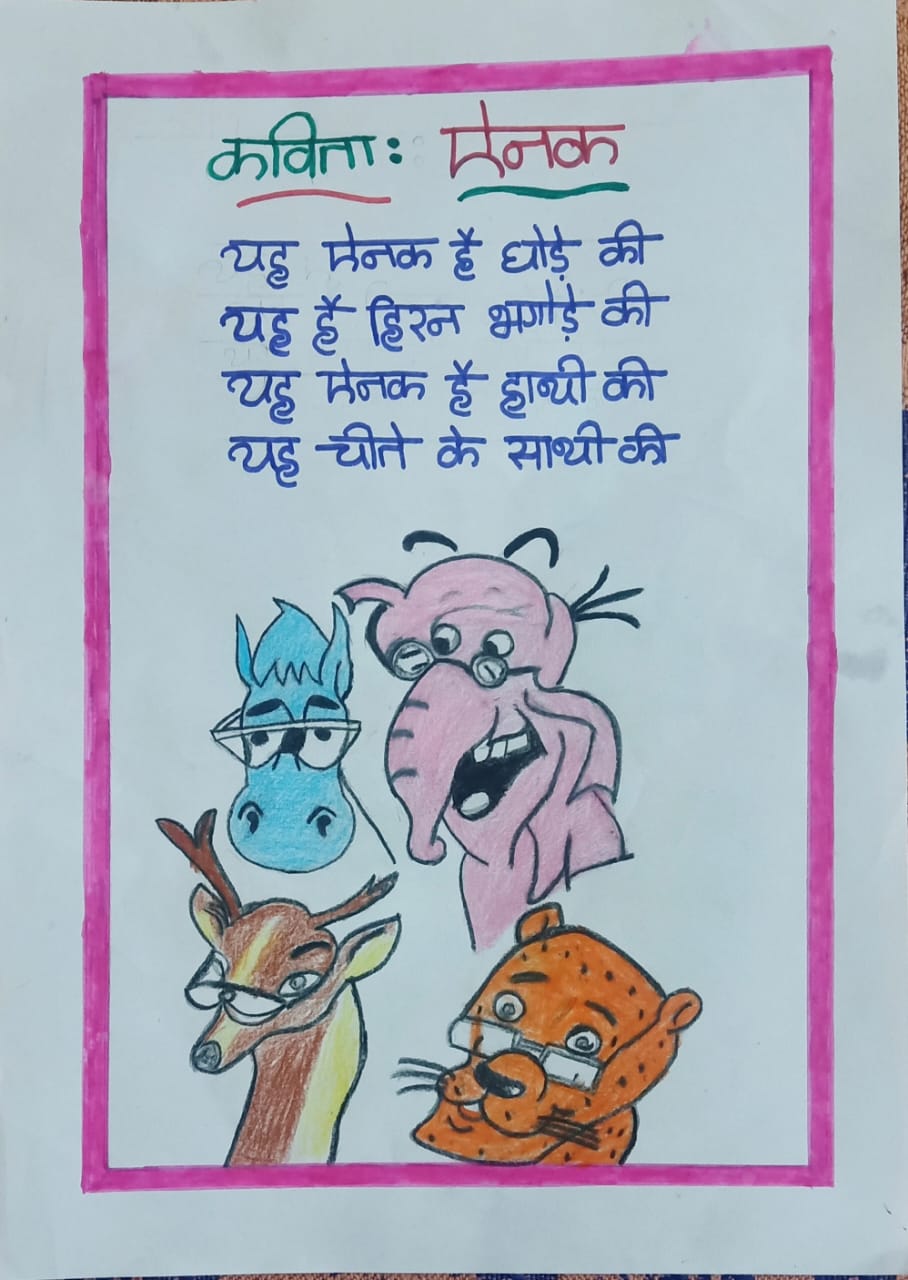 कविता: ऐनक
यह ऐनक है घोड़े की
यह है हिरन भगोड़े की
यह ऐनक है हाथी की
यह चीते के साथी की